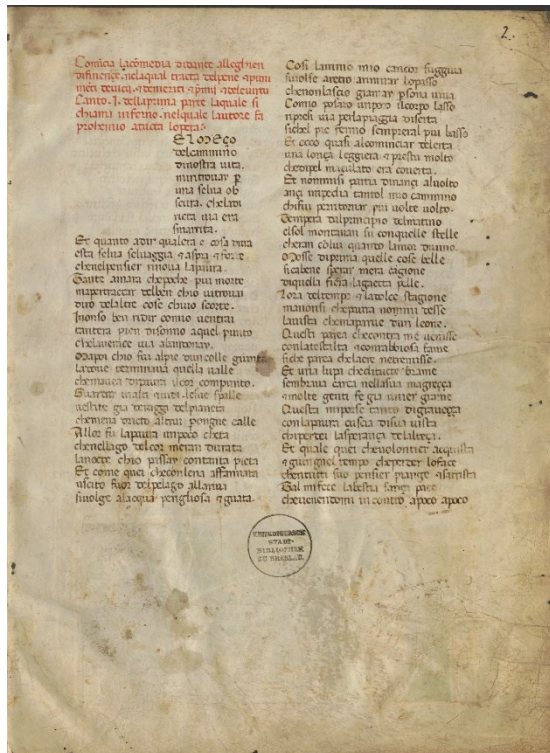 2.
Comicia lacomedia didante alleghieri
difirençe. nelaqual tracta delpene & puni
menti deuicij. & demeriti & pmij deleuirtu
Canto .I. dellaprima parte laquale si
chiama inferno. nelquale lautore fa
prohemio atucta lopera.
EL MEÇO
delcammino
dinostra uita.
miritrouai p
una selua ob
scura. chela di
ricta uia era
smarrita.
Et quanto adir qualera e cosa dura
esta selua seluaggia & aspra & forte
chenelpensier rinoua lapaura.
Tante amara chepocho piu morte
mapertractar delben chio uitrouai
diro delaltre cose chiuio scorte.
Inonso ben ridir comio uentrai
tantera pien disonno aquel punto
chelauerace uia abandonai.
Mapoi chio fui alpie dun colle giunto
ladoue terminaua quella ualle
chemauea dipaura ilcor compunto.
Guardai inalti & uidi lesue spalle
uestite gia deraggi delpianeta
chemena dricto altrui pongne calle
Allor fu lapaura unpoco cheta
chenellago delcor mera durata
lanocte chio passai contanta pieta
Et come quei checonlena affannata
uscito fuor delpelago allariua
siuolge alacqua perigliosa & guata.
Cosi lanimo mio cancor fuggiua
siuolse aretro arimirar lopasso
chenonlascio giamai psona uiua
Comio posato unpoco ilcorpo lasso
ripresi uia perlapiaggia diserta
sichel pie fermo sempreral piu basso
Et ecco quasi alcominciar delerta
una lonça leggiera & presta molto
chedipel maculato era couerta.
Et nonmisi partia dinançi aluolto
ançi impedia tantol mio cammino
chifui peritornar piu uolte uolto.
Tempera dalprincipio delmatino
elsol montauan su conquelle stelle
cheran cólui quanto lamor diuino.
Mosse diprima quelle cose belle
sicabene sperar mera cagione
diquella fiera lagaetta pelle.
Lora deltempo & ladolce stagione
manonsi chepaura nonmi desse
lauista chemapparue dun leone.
Questi parea checontra me uenisse
conlatestalta & conrabbiosa fame
siche parea chelaere netremesse.
Et una lupa chedituctе brame
sembiaua carca nellasua magreçça
& molte genti fe gia uiuer grame
Questa mi porse tanto digraueçça
conlapaura cuscia disua uista
chiperdei lasperança delalteçça.
Et quale quei cheuolontier acquista
& giungnel tempo cheperder loface
chentutti suo pensier piange & sattrista
Tal mifece labestia sança pace
cheuenendomi incontro apoco apoco
STADT-
BIBLIOTHEK
ZU BRESLAU.